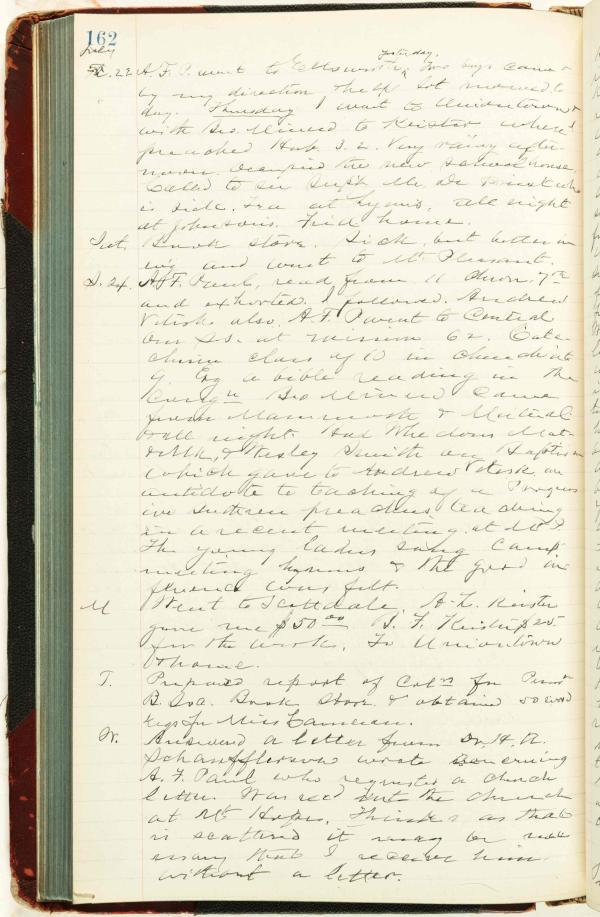 162
July
yesterday,
Fri. 22 A. F. P. went to Ellsworth, Two boys came
by my direction The lot moved to
day. Thursday I went to Uniontown &
with Bro. Minerd to Keister where I
preached Hab. 3.2. Very rainy after-
noon. Occupied the new school house.
Called to see Supt. Mr. De Priest who
is sick. Tea at Byers, all night
at Johnsons. Frid home.
Sat. Book store. Sick, but better in
ev'g and went to Mt Pleasant.
S. 24. A. F. Paul, read from 11 Chron. 7th
and exhorted. I followed. Andrew
also. A. F. P. went to Central
our S.S. at Mission 62. Cate-
chism class of 10 in church at
9. Eng a bible reading in the
Bro Minerd came
from Mammoth & Mutual
& all night. Had
& Wesley Smith on Baptism
which gave to Andrew an
antidote to teaching of a Progress
ive preachers teaching
in a recent meeting at Mt P
The young ladies sang camp
meeting hymns & the good in
fluence was felt.
M Went to Scottdale, A. L. Keister
gave me $50.00 J. F. Keister $25-
for the work. To Uniontown
& home.
T. Prepared report of Colns for
B. Soc. Book Store & obtained 50 word
for Miss Cameron.
W. Answered a letter from Dr. H. A.
Schauffler who wrote concerning
A. F. Paul who requested a church
letter. Was rec'd into the church
at Mt Hope, Thinks as that
is scattered it may be nec
essary that I receive him
without a letter.